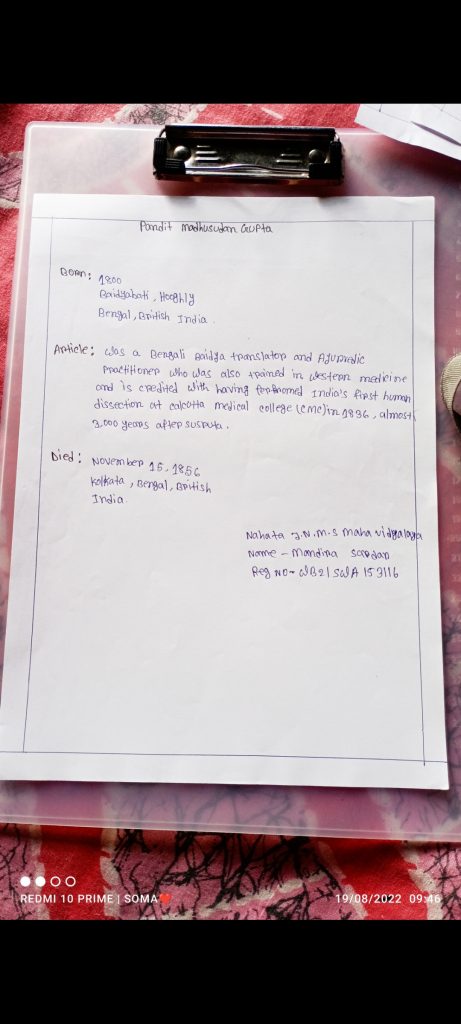 Pandit Madhusudan Gupta
Born: 1800
Baidyabati, Hooghly
Bengal, British India.
Article: Was a Bengali Baidya translator and Ayurvedic
Practitioner who was also trained in western medicine
and is credited with having performed India's first human
dissection at calcotta medical college (CMC) in 1836, almost
3,000 years after susruta.
Died: November 15, 1856
Kolkata, Bengal, British
India.
Nahata J.N.M.S Maha vidyalaya
Name - Mandira Sardar
Reg No- WB21SWA153116
REDMI 10 PRIME | SOMA❤
19/08/2022 09:46